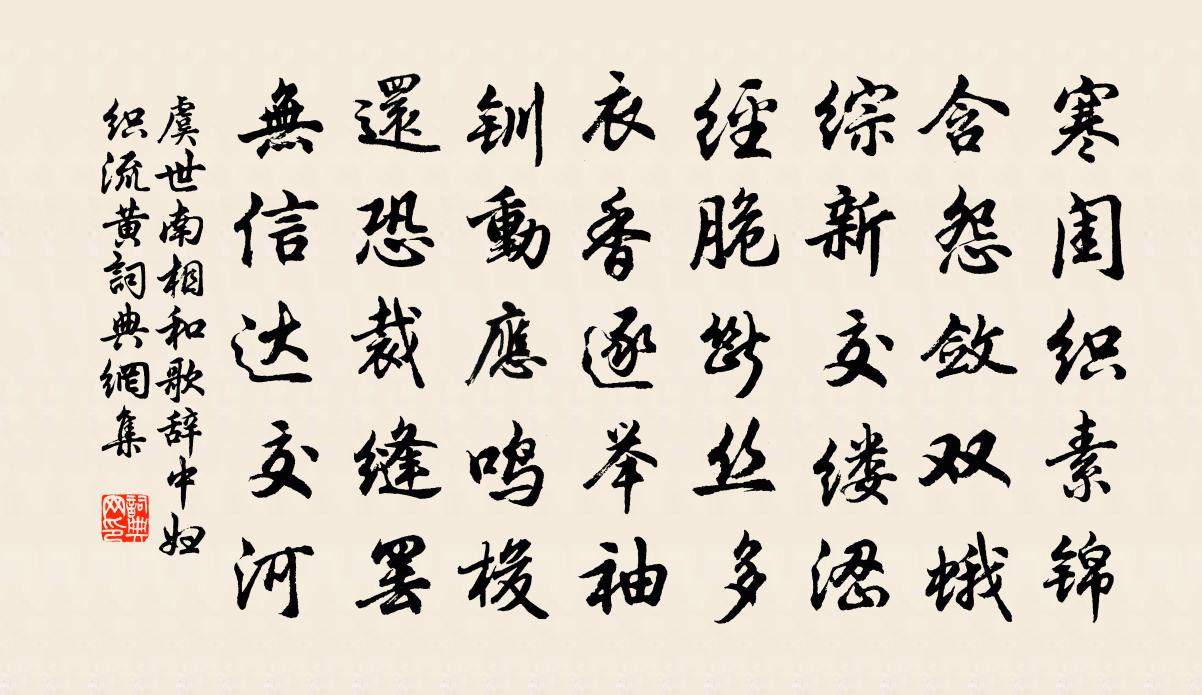 寒闺织素锦
含怨敛双蛾
综新交缕涩
經脆断丝多
衣香逐举袖
钏動應鸣梭
還恐裁縫罢
無信达交河
虞世南相和歌辞中妇
织流黄詞典網集
詞典
网印